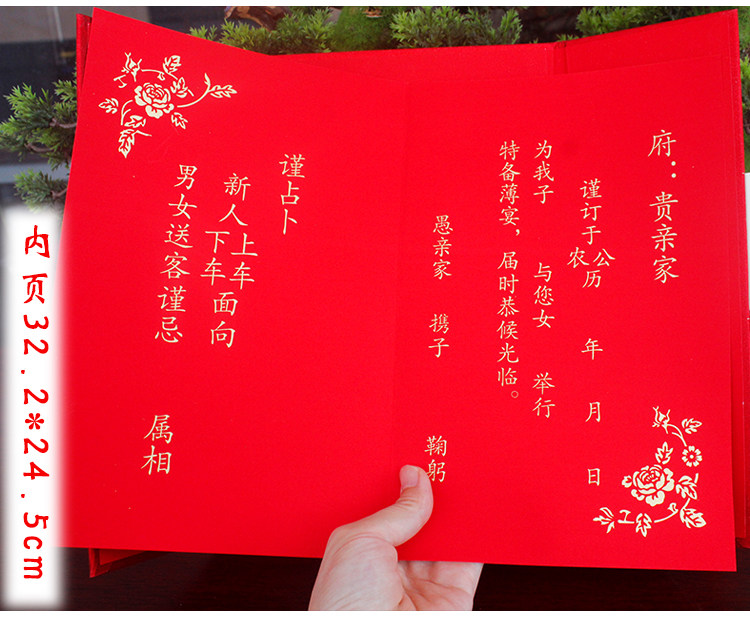 府：贵亲家
谨订于
公
农
历
年 月 日
为我子 与您女 举行
特备薄宴，届时恭候光临。
愚亲家 携子 鞠躬
谨占卜
新人上车
下车
面向
男女送客谨忌
属相
内页32.2*24.5cm